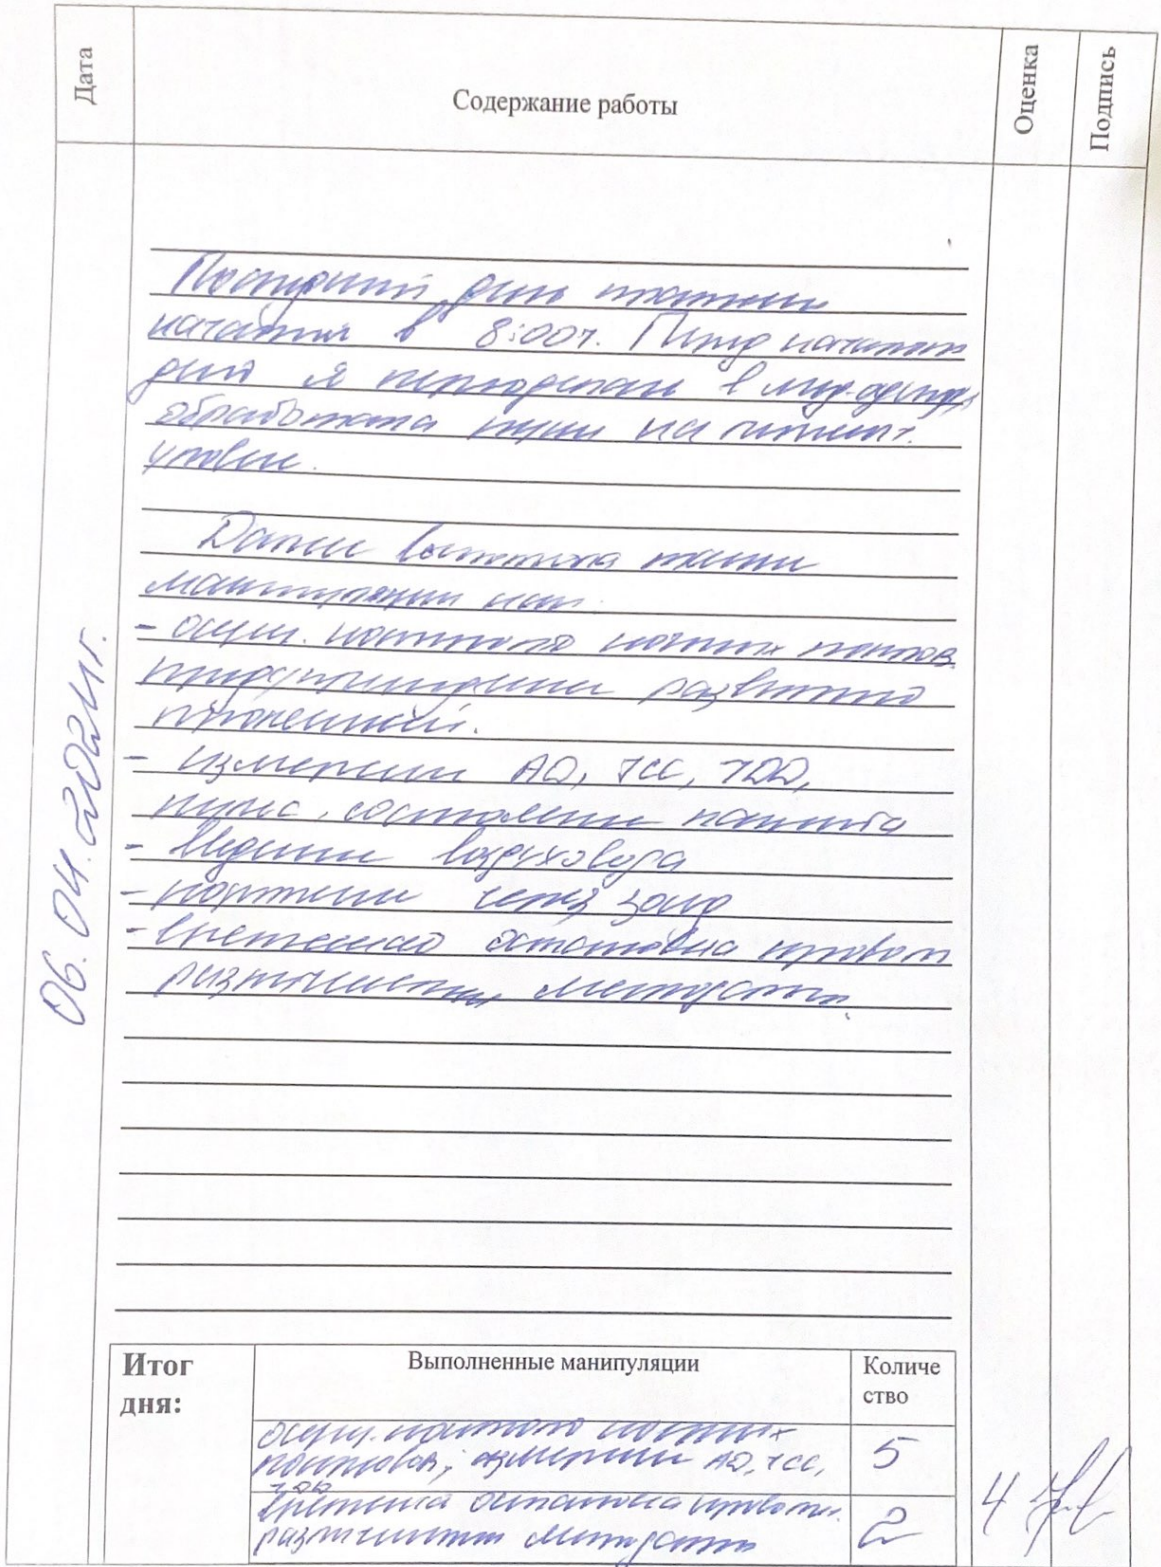 Дата
Содержание работы
Оценка
Подпись
06.04.2021г.
Последний день практики
начался в 8:00ч. Перед началом
дня я переоделась в мед. одежду,
обработала руки на гигиен.
уровне.
Далее выполняла такие
манипуляции как:
- осущ. контроля
предупреждении развития
пролежней.
- измерении АД, ЧСС, ЧДД,
пульс, состоянии пациента
- Введении воздуховода
- кормлении через зонд
- временной остановка кровот.
различными методами.
Итог
дня:
Выполненные манипуляции
Количе
ство
осущ. контроля
измерении АД, ЧСС,
ЧДД
5
Временная остановка кровотеч.
различными методами
2
4